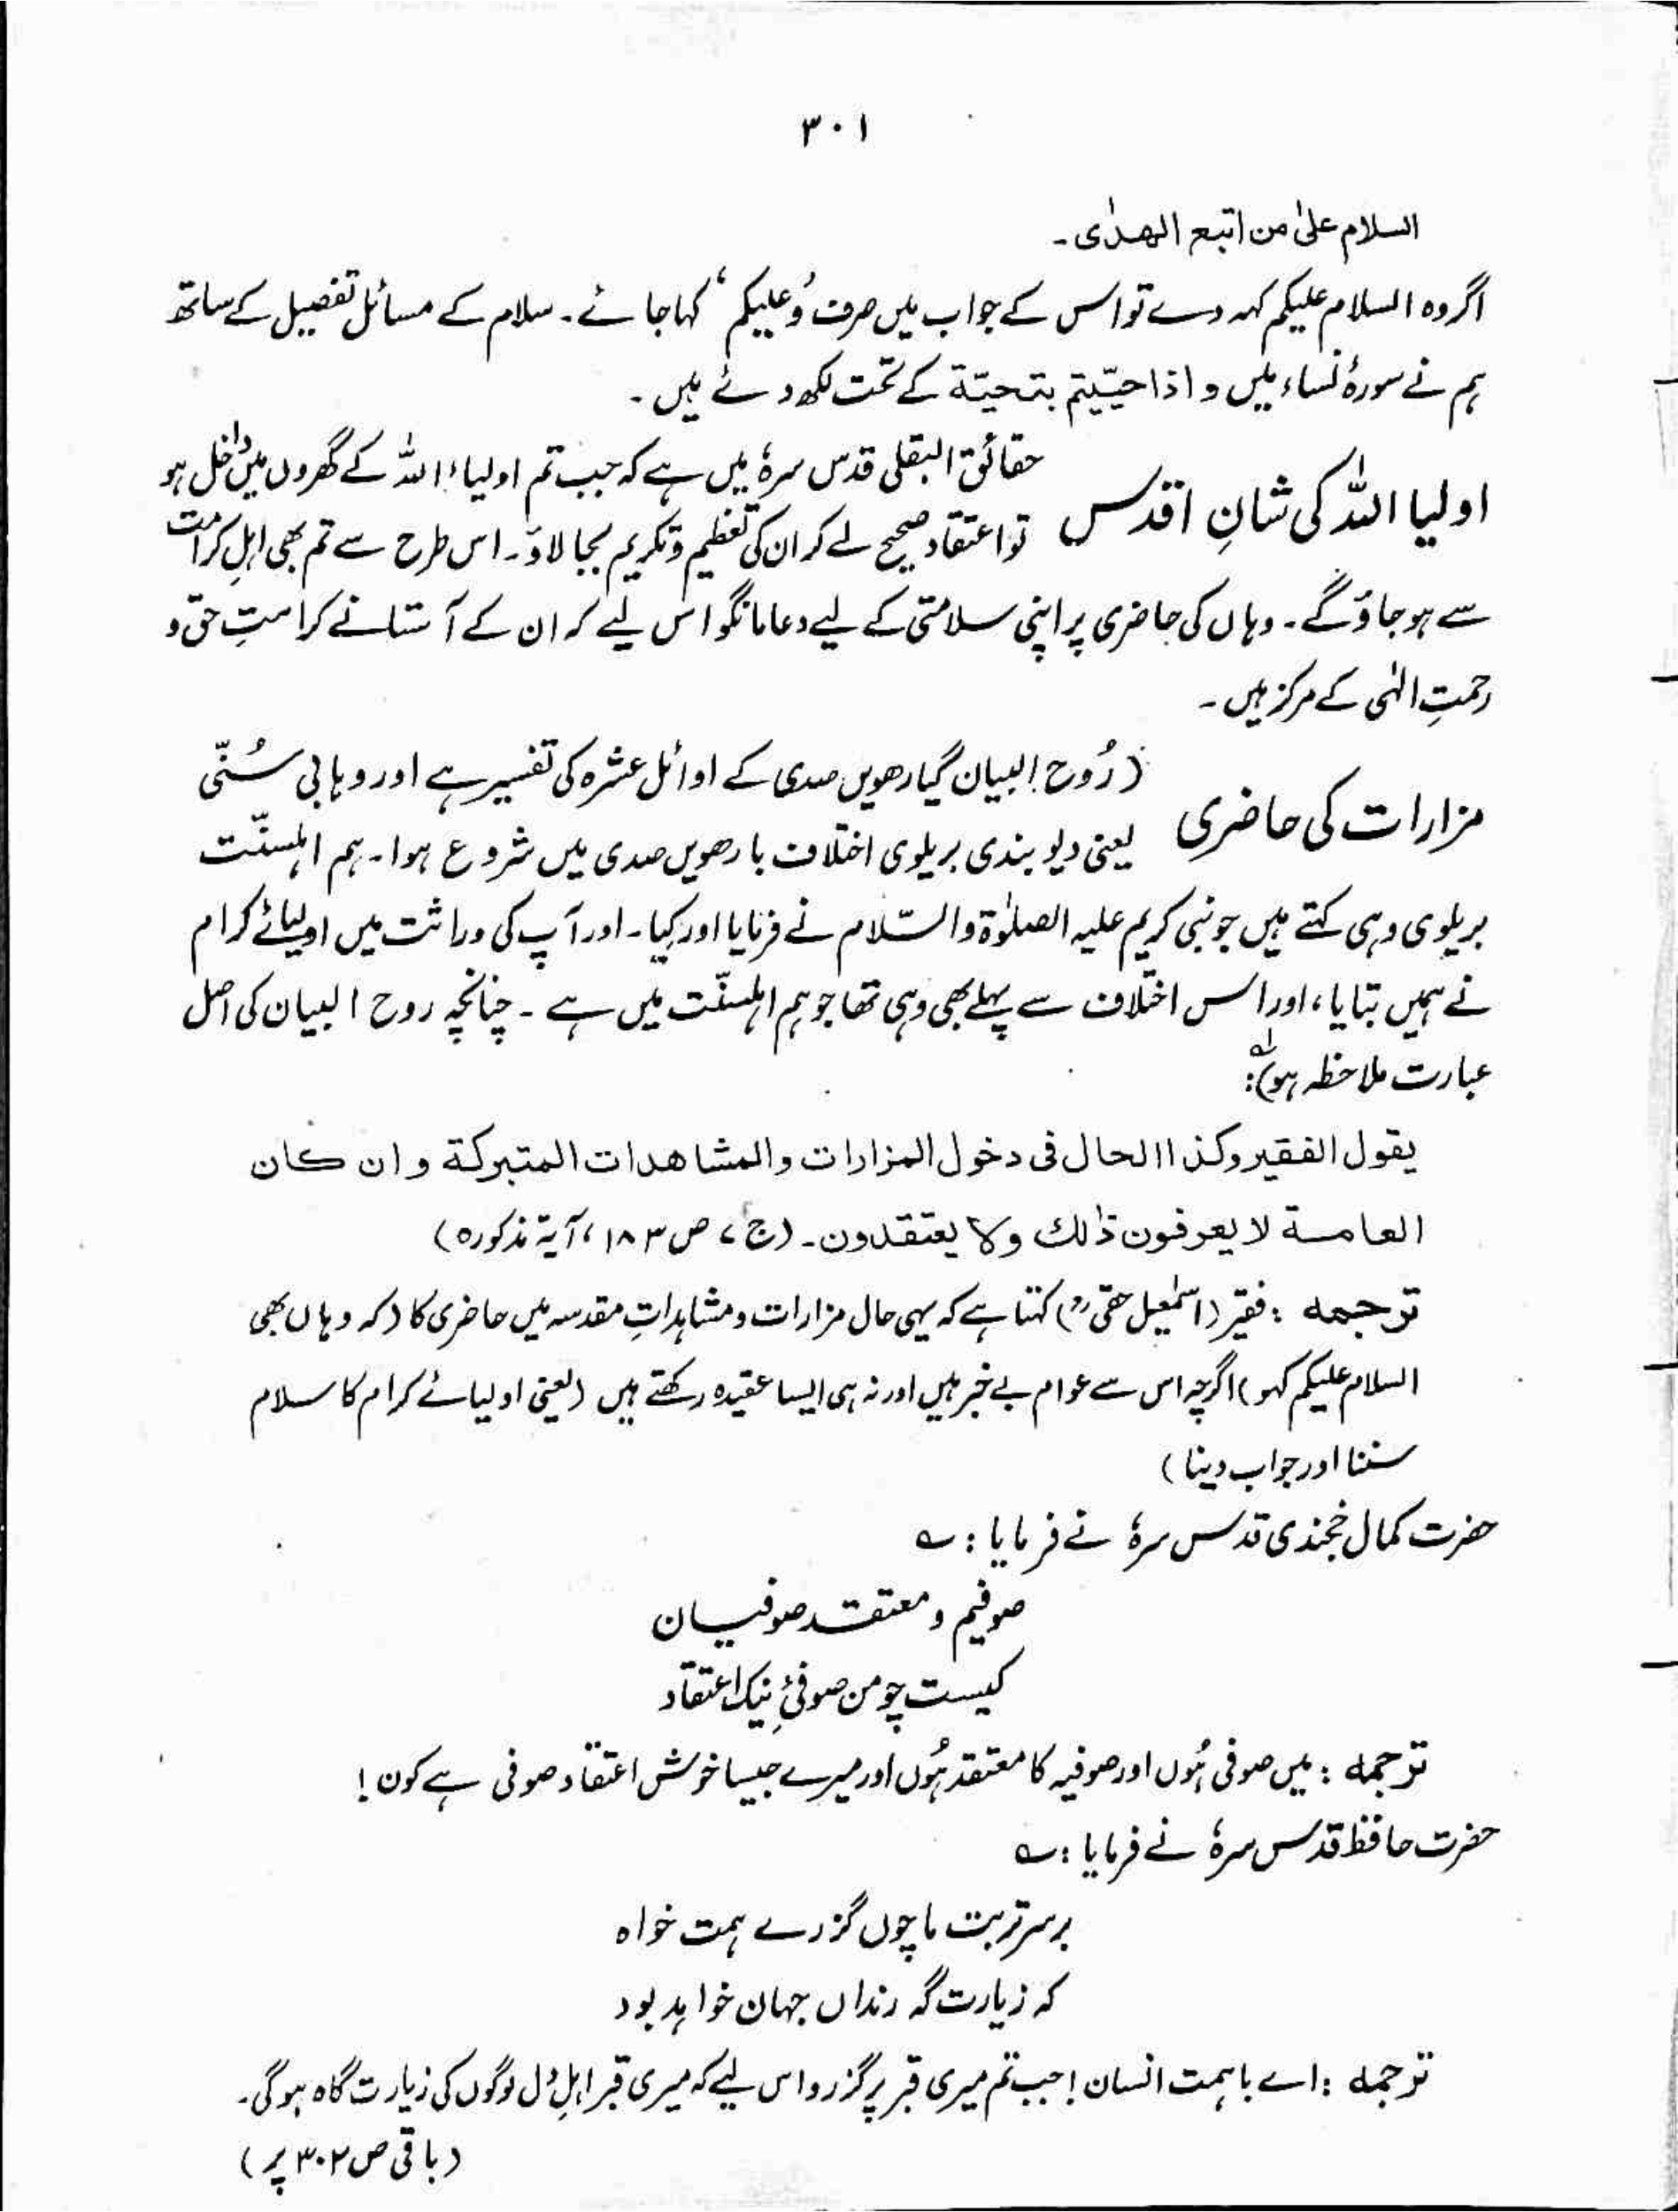 ۳۰۱
السلام علیٰ من اتبع الھدٰی۔
اگر وہ السلام علیکم کہہ دے تو اس کے جواب میں صرف 'وُعلیکم' کہا جائے۔ سلام کے مسائل تفصیل کے ساتھ
ہم نے سورۂ نساء میں و اذا حیّیتم بتحیّة کے تحت لکھ دئے ہیں۔
اولیا اللہ کی شانِ اقدس
حقائق البقلی قدس سرہٗ میں ہے کہ جب تم اولیاء اللہ کے گھروں میں داخل ہو
تو اعتقاد صحیح لے کر ان کی تعظیم و تکریم بجا لاؤ۔ اس طرح سے تم بھی اہلِ کرامت
سے ہو جاؤ گے۔ وہاں کی حاضری پر اپنی سلامتی کے لیے دعا مانگو اس لیے کہ ان کے آستانے کرامتِ حق و
رحمتِ الٰہی کے مرکز ہیں۔
مزارات کی حاضری
(رُوح البیان گیارھویں صدی کے اوائل عشرہ کی تفسیر ہے اور وہابی سُنّی
یعنی دیوبندی بریلوی اختلاف بارھویں صدی میں شروع ہوا۔ ہم اہلسنّت
بریلوی وہی کہتے ہیں جو نبی کریم علیہ الصلوٰۃ والسّلام نے فرمایا اور کیا۔ اور آپ کی وراثت میں اولیائے کرام
نے ہمیں بتایا، اور اس اختلاف سے پہلے بھی وہی تھا جو ہم اہلسنّت میں ہے۔ چنانچہ روح البیان کی اصل
عبارت ملاحظہ ہو)لہ:
یقول الفقیر وکذا الحال فی دخول المزارات والمشاھدات المتبرکة و ان کان
العامة لا یعرفون ذٰلک ولا یعتقدون۔ (ج ۷ ص ۱۸۳، آیۃ مذکورہ)
ترجمہ : فقیر (اسمٰعیل حقی رح) کہتا ہے کہ یہی حال مزارات و مشاہداتِ مقدسہ میں حاضری کا (کہ وہاں بھی
السلام علیکم کہو) اگرچہ اس سے عوام بے خبر ہیں اور نہ ہی ایسا عقیدہ رکھتے ہیں (یعنی اولیائے کرام کا سلام
سننا اور جواب دینا)
حضرت کمال خجندی قدس سرہٗ نے فرمایا : ؎
صوفیم و معتقد صوفیان
کیست چو من صوفیِٔ نیک اعتقاد
ترجمہ : میں صوفی ہُوں اور صوفیہ کا معتقد ہُوں اور میرے جیسا خوش اعتقاد صوفی ہے کون !
حضرت حافظ قدس سرہٗ نے فرمایا : ؎
برسر تربت ما چوں گزرے ہمت خواہ
کہ زیارت گہ رنداں جہان خواہد بود
ترجمہ : اے باہمت انسان ! جب تم میری قبر پر گزرو اس لیے کہ میری قبر اہلِ دل لوگوں کی زیارت گاہ ہوگی۔
(باقی ص ۳۰۲ پر)